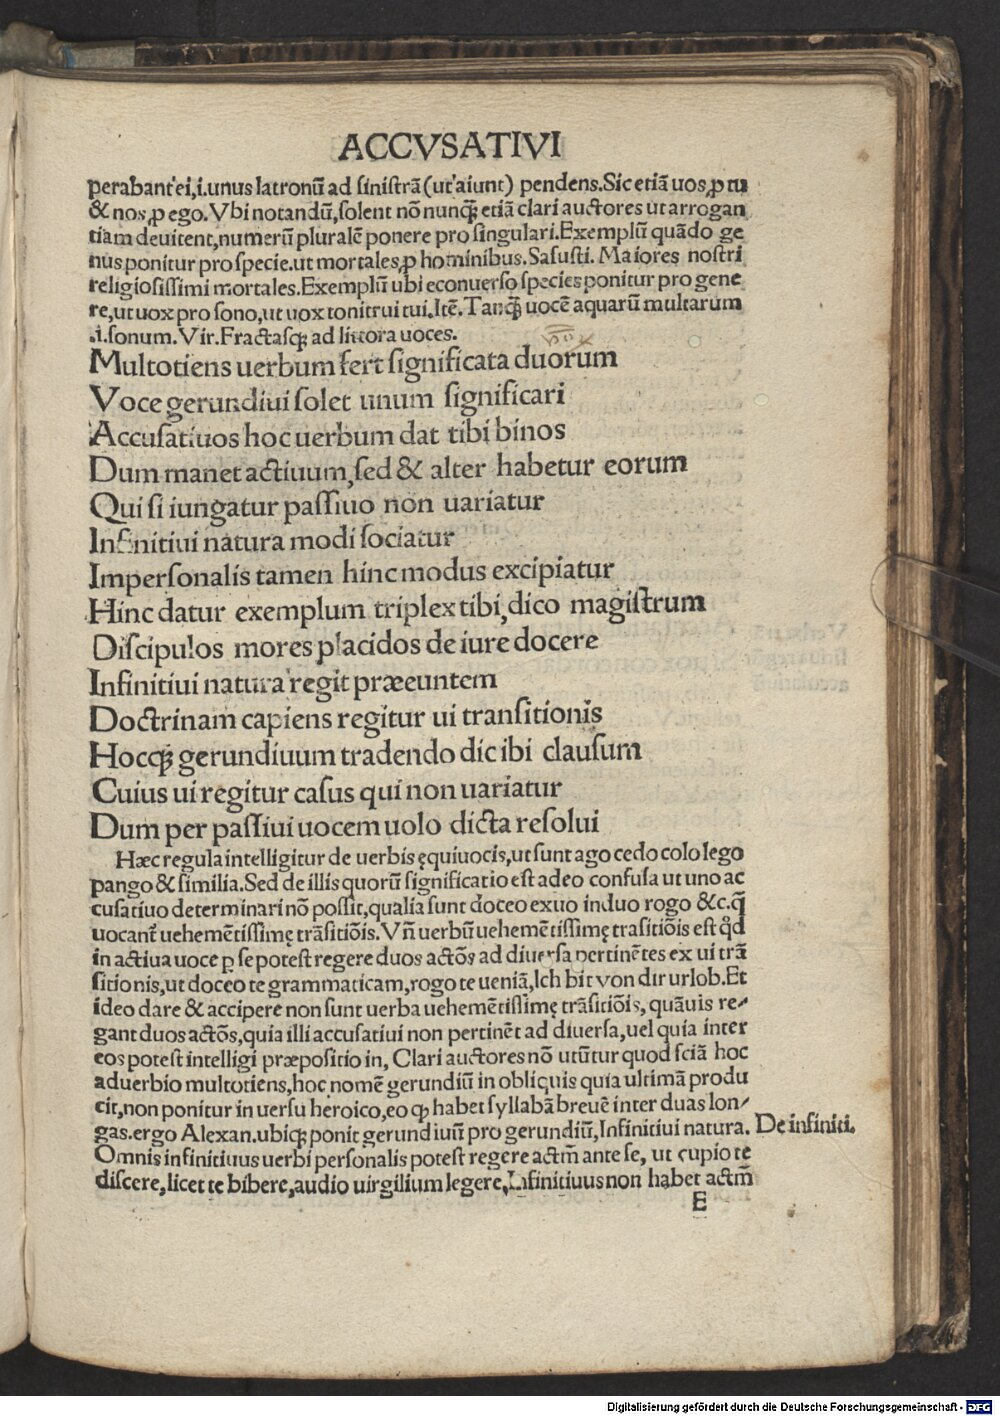 ACCVSATIVI
perabant ei, i. unus latronū ad sinistrā (ut aiunt) pendens. Sic etiā uos, ꝓ tu
& nos, ꝓ ego. Vbi notandū, solent nō nunqꝫ etiā clari auctores ut arrogan
tiam deuitent, numerū pluralē ponere pro singulari. Exemplū quādo ge
nus ponitur pro specie. ut mortales, ꝓ hominibus. Salusti. Maiores nostri
religiosissimi mortales. Exemplū ubi econuerso species ponitur pro gene
re, ut uox pro sono, ut uox tonitrui tui. Itē. Tanqꝫ uocē aquarū multarum
.i. sonum. Vir. Fractasqꝫ ad littora uoces.
Multotiens uerbum fert significata duorum
Voce gerundiui solet unum significari
Accusatiuos hoc uerbum dat tibi binos
Dum manet actiuum, sed & alter habetur eorum
Qui si iungatur passiuo non uariatur
Infinitiui natura modi sociatur
Impersonalis tamen hinc modus excipiatur
Hinc datur exemplum triplex tibi, dico magistrum
Discipulos mores placidos de iure docere
Infinitiui natura regit præeuntem
Doctrinam capiens regitur ui transitionis
Hocqꝫ gerundiuum tradendo dic ibi clausum
Cuius ui regitur casus qui non uariatur
Dum per passiui uocem uolo dicta resolui
Hæc regula intelligitur de uerbis ęquiuocis, ut sunt ago cedo colo lego
pango & similia. Sed de illis quorū significatio est adeo confusa ut uno ac
cusatiuo determinari nō possit, qualia sunt doceo exuo induo rogo &c. q̄
uocant̄ uehemētissimę trāsitiōis. Vn̄ uerbū uehemētissimę trasitiōis est qd̄
in actiua uoce ꝑ se potest regere duos actōs ad diuersa pertinētes ex ui trā
sitionis, ut doceo te grammaticam, rogo te ueniā, Ich bit von dir urlob. Et
ideo dare & accipere non sunt uerba uehemētissimę trāsitiōis, quāuis re⸗
gant duos actōs, quia illi accusatiui non pertinēt ad diuersa, uel quia inter
eos potest intelligi præpositio in, Clari auctores nō utūtur quod sciā hoc
aduerbio multotiens, hoc nomē gerundiū in obliquis quia ultimā produ
cit, non ponitur in uersu heroico, eo ꝙ habet syllabā breuē inter duas lon⸗
gas. ergo Alexan. ubiqꝫ ponit gerundiuū pro gerundiū, Infinitiui natura. De infiniti.
Omnis infinitiuus uerbi personalis potest regere actm̄ ante se, ut cupio te
discere, licet te bibere, audio uirgilium legere, Infinitiuus non habet actm̄
E
Digitalisierung gefördert durch die Deutsche Forschungsgemeinschaft - DFG